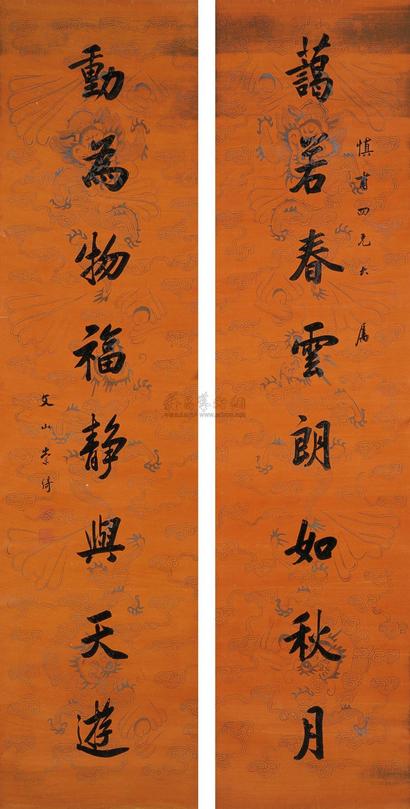 慎甫四兄大 属
藹若春雲朗如秋月
動為物福静與天遊
文山崇綺